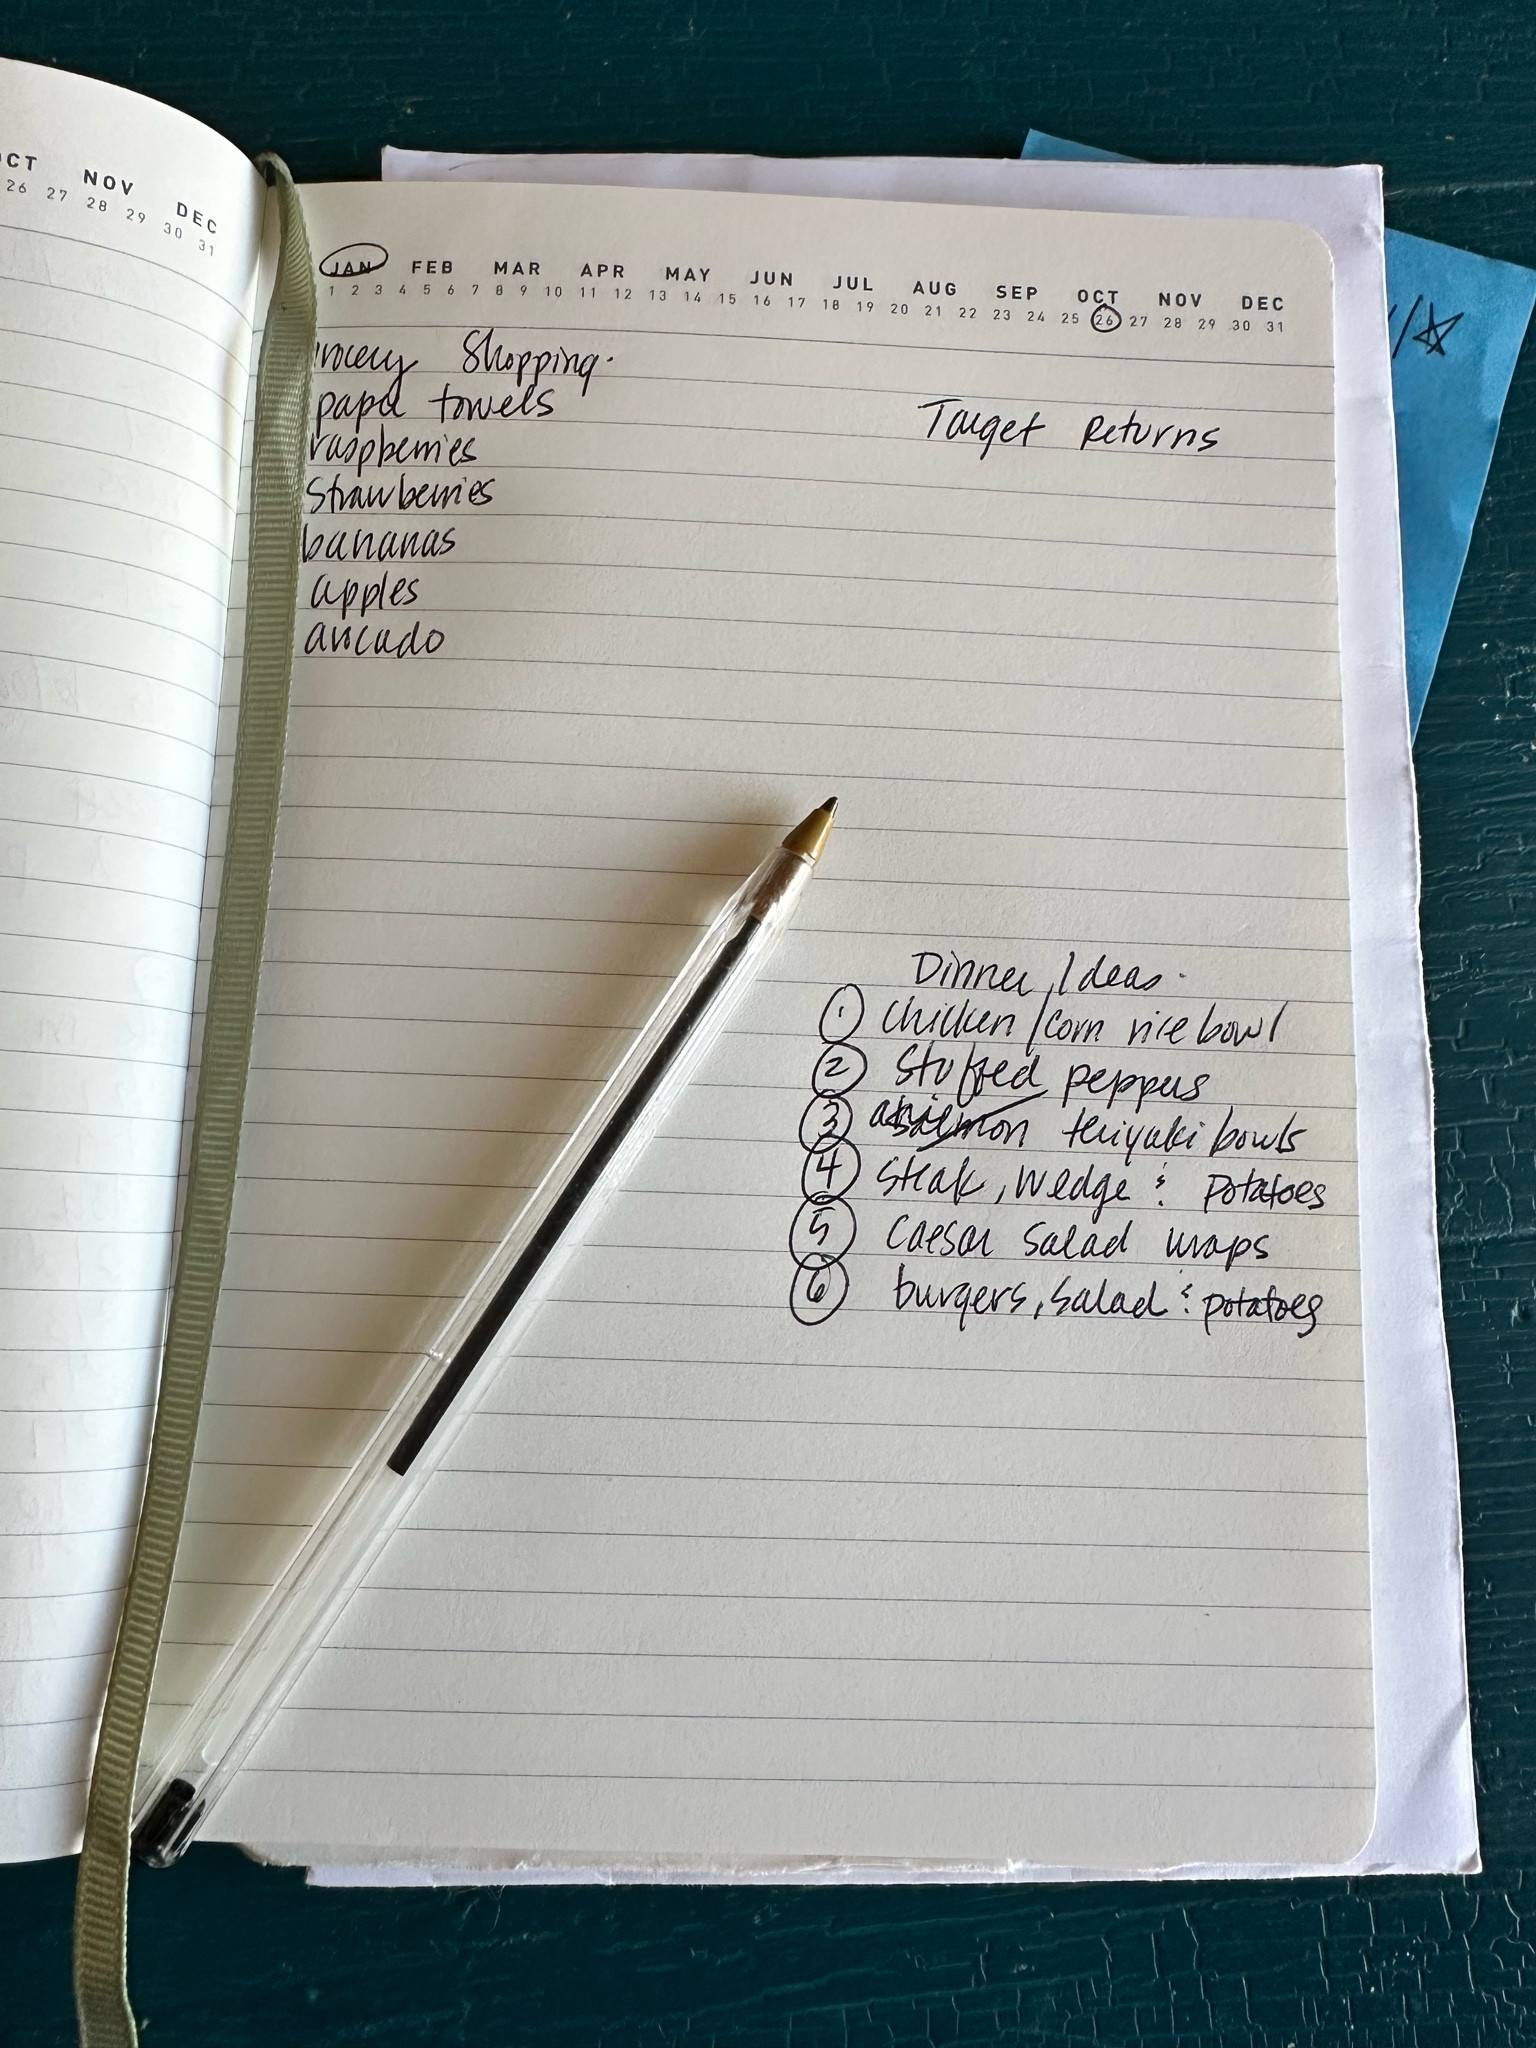 OCT NOV DEC
26 27 28 29 30 31
JAN FEB MAR APR MAY JUN JUL AUG SEP OCT NOV DEC
1 2 3 4 5 6 7 8 9 10 11 12 13 14 15 16 17 18 19 20 21 22 23 24 25 26 27 28 29 30 31
grocery Shopping.
paper towels
raspberries
Strawberries
bananas
apples
avocado
Target Returns
Dinner Ideas.
1 Chicken/Corn rice bowl
2 Stuffed peppers
3 salmon teriyaki bowls
4 Steak, wedge & potatoes
5 Caesar Salad wraps
6 burgers, Salad & potatoes